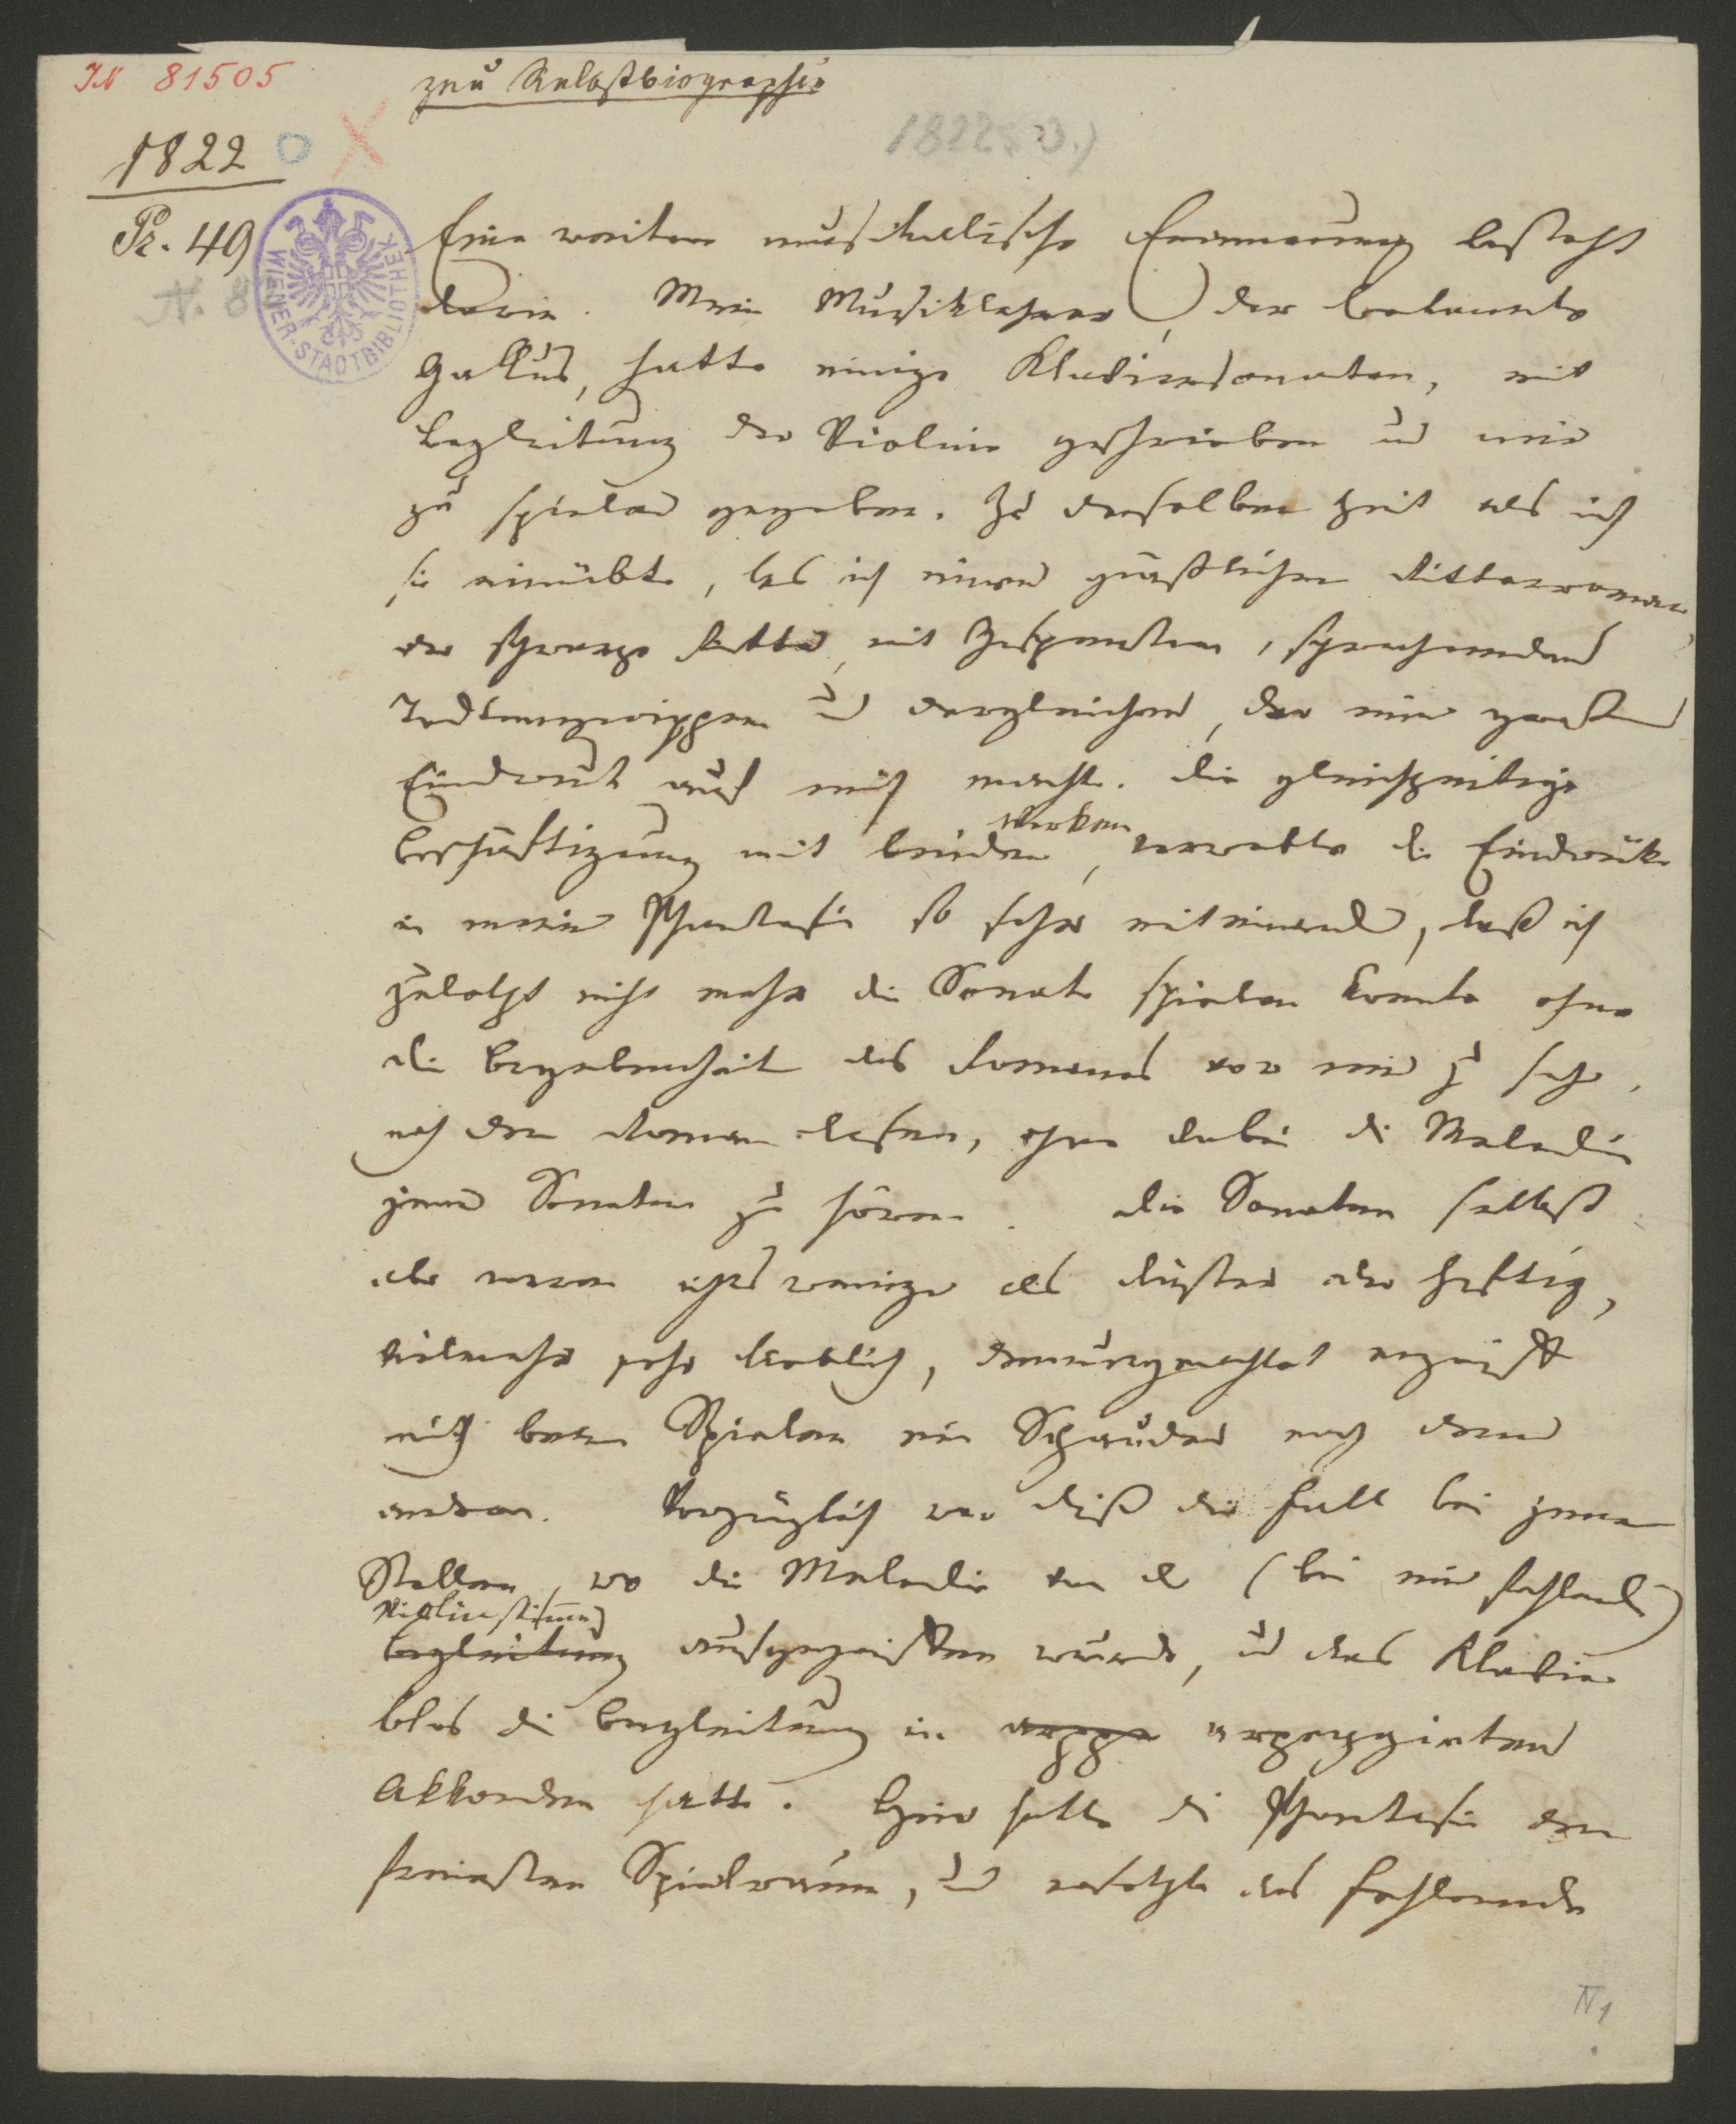 IN 81505
zur Selbstbiographie
1822
1822 (?)
Pr. 49
N. 8
WIENER STADTBIBLIOTHEK
Eine weitere musikalische Erinnerung besteht
darin. Mein Musiklehrer, der bekannte
Gallus, hatte einige Klaviersonaten, mit
Begleitung der Violine geschrieben und mir
zu spielen gegeben. Zu derselben Zeit als ich
sie einübte, las ich einen gräßlichen Ritterroman,
der schwarze Ritter, mit Gespenstern, sprechenden
Todtengerippen und dergleichen, der einen großen
Eindruck auf mich machte. Die gleichzeitige
Beschäftigung mit beiden Werken, verwebte die Eindrücke
in meiner Phantasie so sehr miteinander, daß ich
zuletzt nicht mehr die Sonate spielen konnte ohne
die Begebenheit des Romanes vor mir zu sehen,
noch den Roman lesen, ohne dabei die Melodie
jener Sonaten zu hören. Die Sonaten selbst
aber waren nichts weniger als düster oder heftig,
vielmehr sehr lieblich, demungeachtet ergriff
mich beim Spielen ein Schauder nach dem
andern. Vorzüglich war dieß der Fall bei jenen
Stellen, wo die Melodie von der (bei mir fehlenden)
Violinstimme
Begleitung ausgegriffen wurde, und das Klavier
blos die Begleitung in arppe arpeggirten
Akkorden hatte. Hier hatte die Phantasie den
freiesten Spielraum, und ersetzte das Fehlende
IV 1